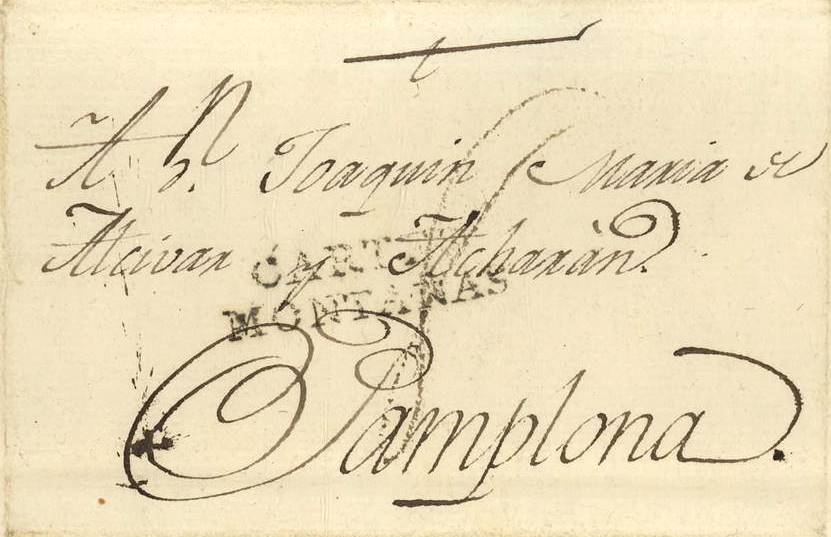 A Dn. Joaquin Maria de
Alcivar y Acharán.
CARTA
MONTAÑAS
Pamplona.